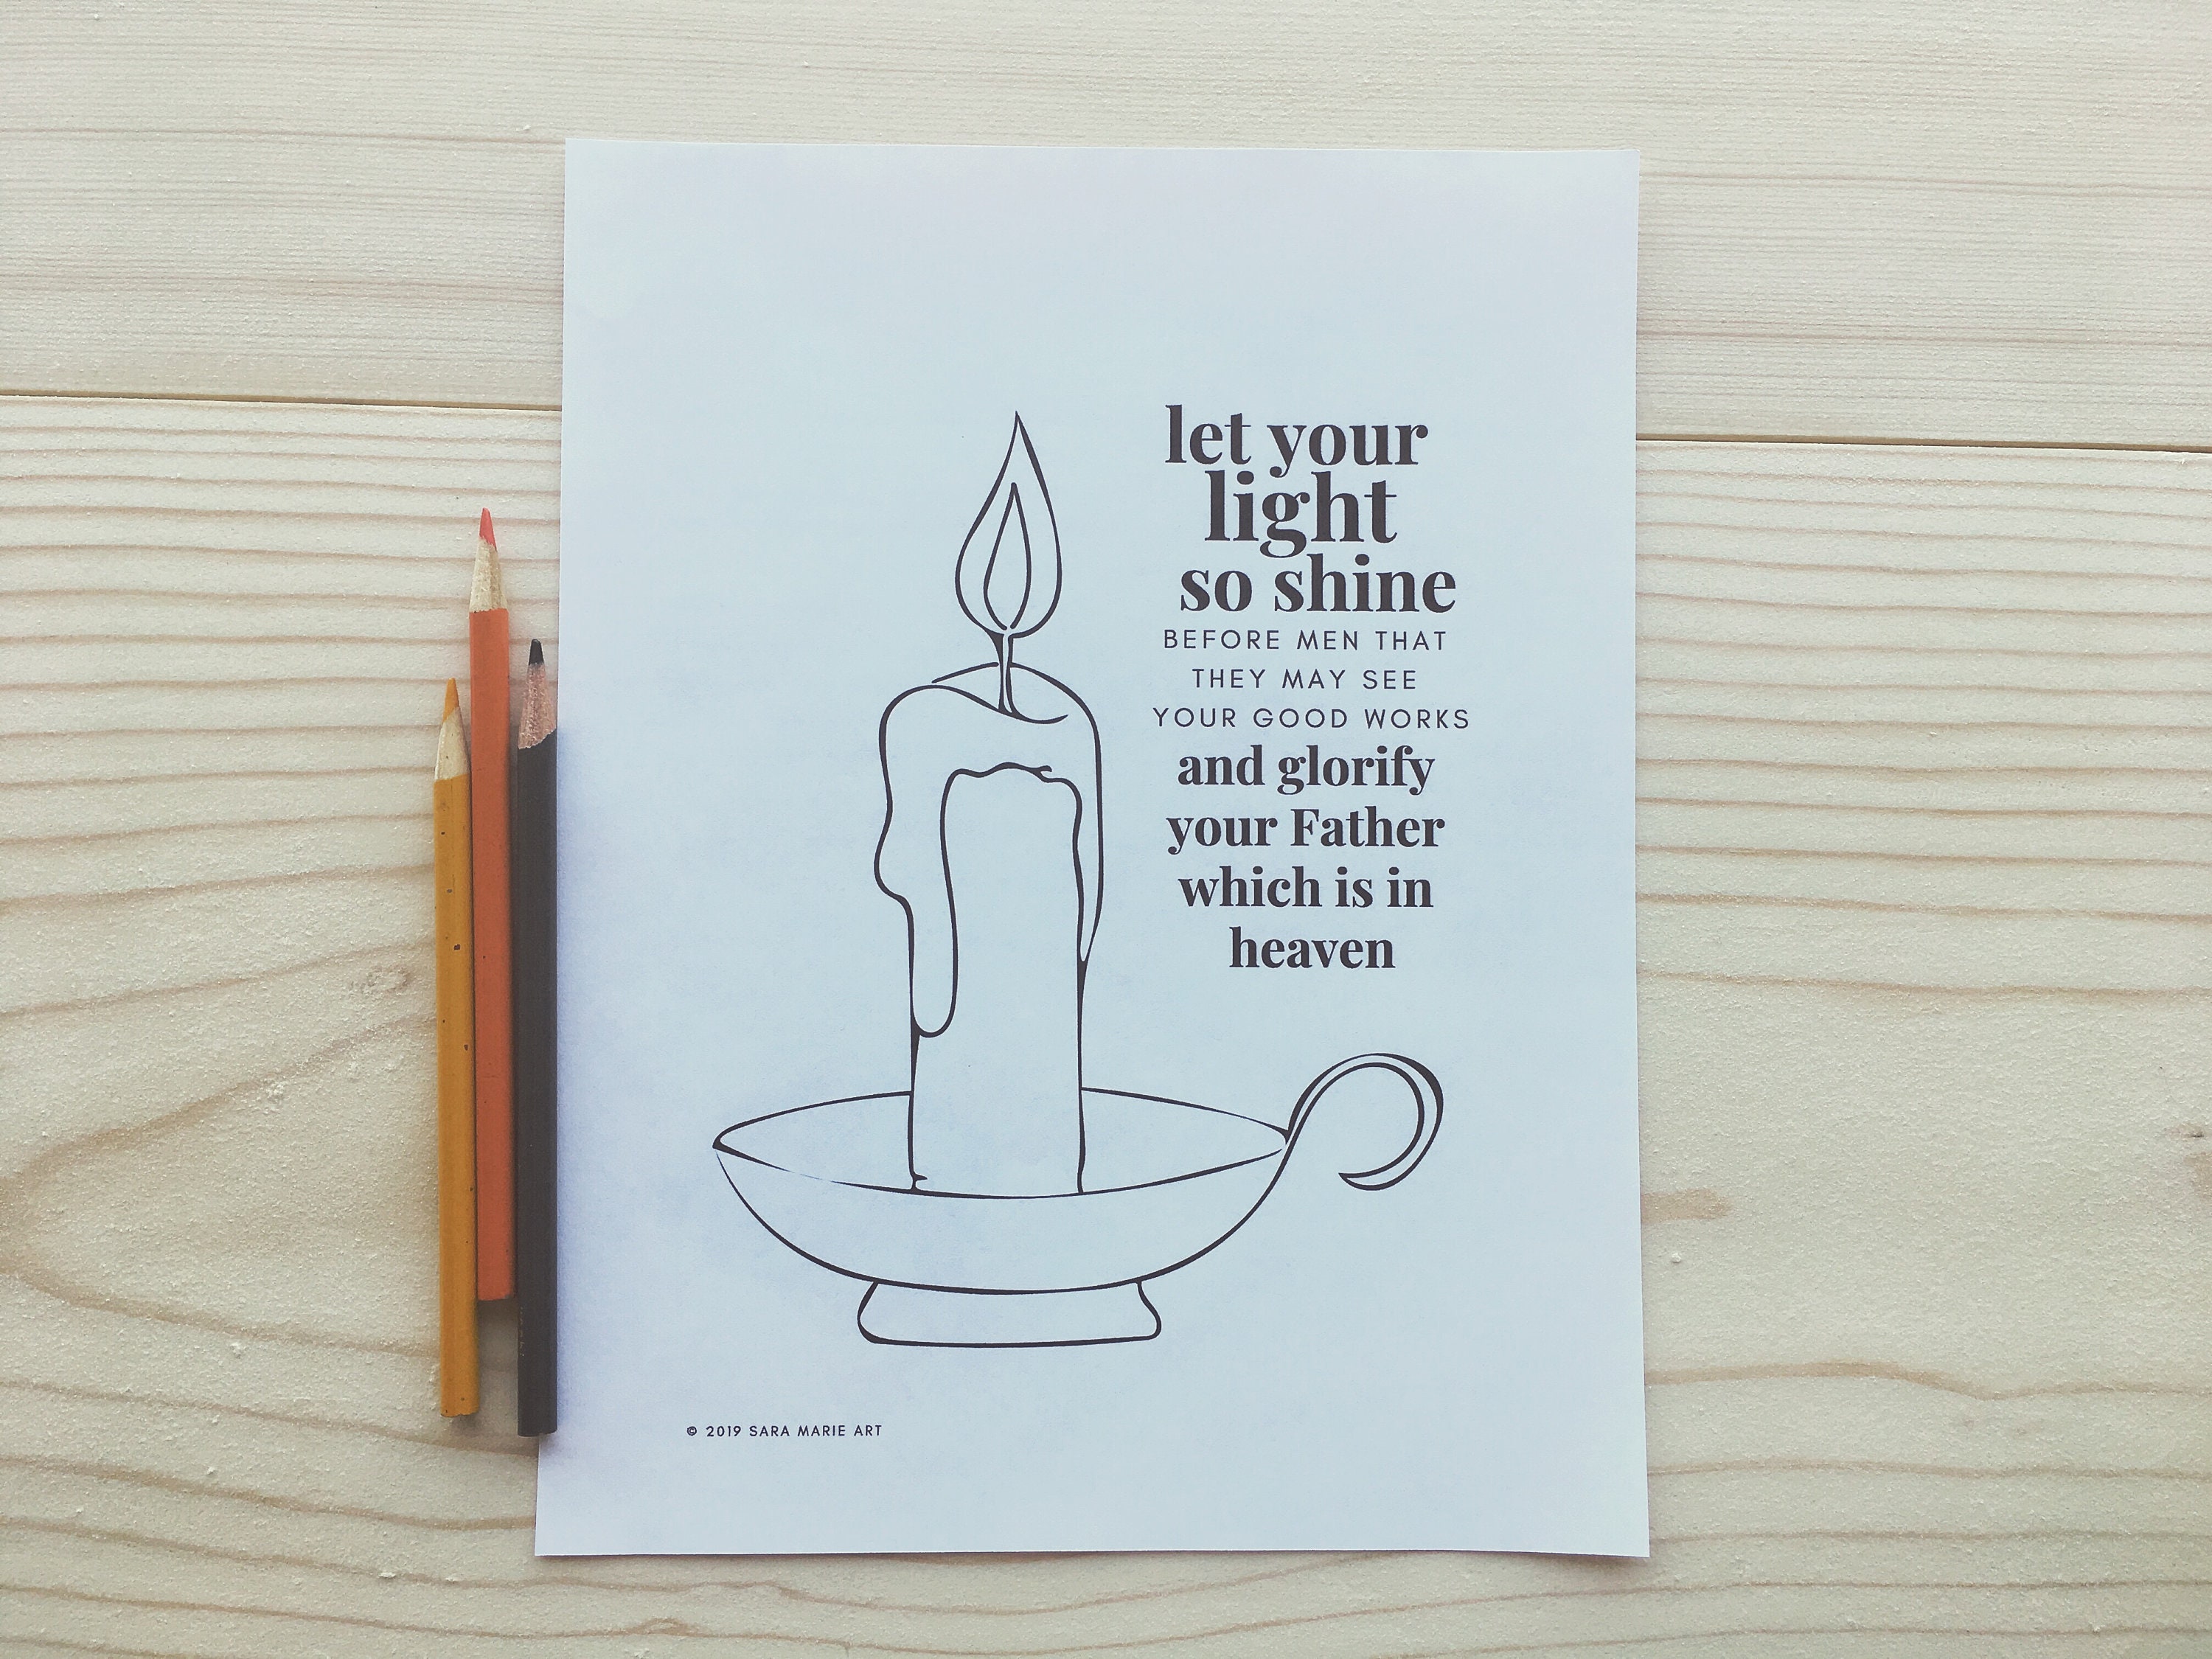 let your
light
so shine
BEFORE MEN THAT
THEY MAY SEE
YOUR GOOD WORKS
and glorify
your Father
which is in
heaven
© 2019 SARA MARIE ART